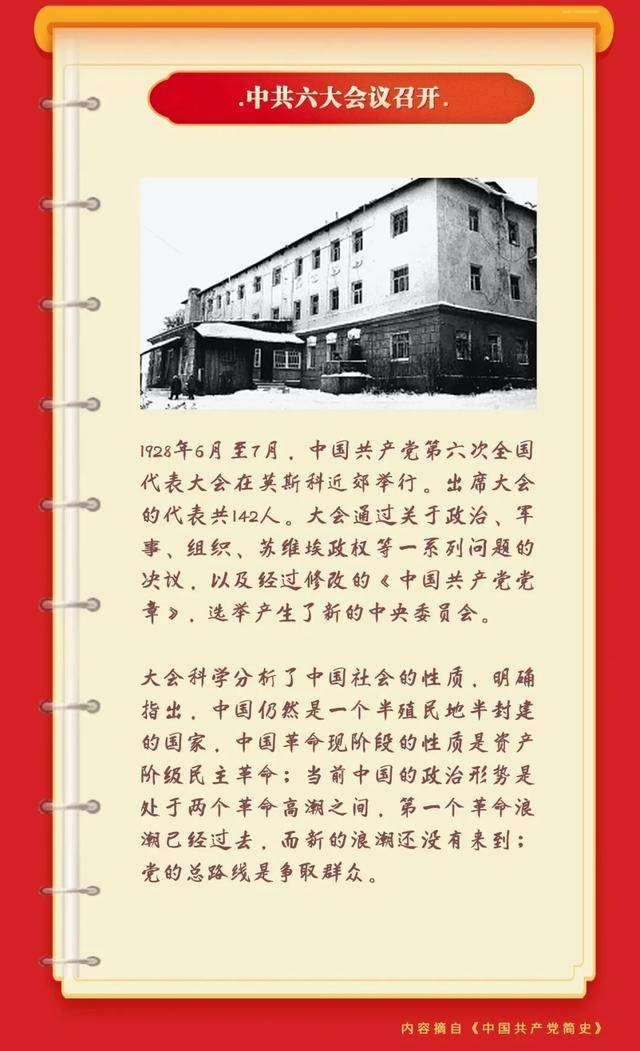 .中共六大会议召开.
1928年6月至7月，中国共产党第六次全国
代表大会在莫斯科近郊举行。出席大会
的代表共142人。大会通过关于政治、军
事、组织、苏维埃政权等一系列问题的
决议，以及经过修改的《中国共产党党
章》，选举产生了新的中央委员会。
大会科学分析了中国社会的性质，明确
指出，中国仍然是一个半殖民地半封建
的国家，中国革命现阶段的性质是资产
阶级民主革命；当前中国的政治形势是
处于两个革命高潮之间，第一个革命浪
潮已经过去，而新的浪潮还没有来到；
党的总路线是争取群众。
内容摘自《中国共产党简史》